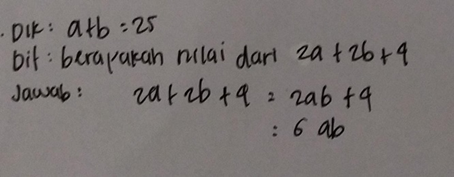 . Dik : a+b = 25
Dit : berapakah nilai dari 2a + 2b + 4
Jawab : 2a + 2b + 4 = 2ab + 4
: 6 ab